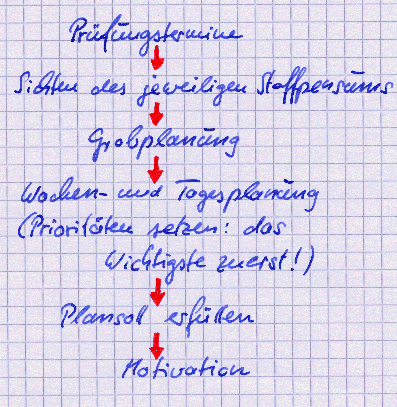 Prüfungstermine
Sichten des jeweiligen Stoffpensums
Grobplanung
Wochen- und Tagesplanung
(Prioritäten setzen: das
Wichtigste zuerst!)
Plansoll erfüllen
Motivation